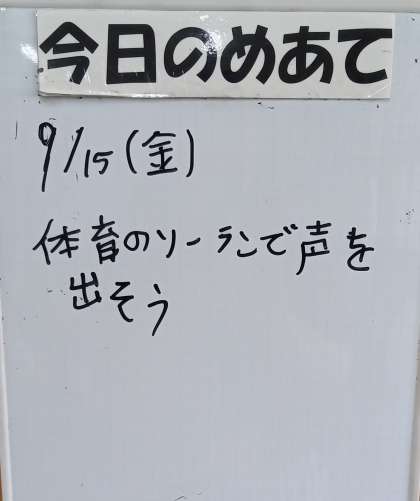 今日のめあて
9/15(金)
体育のソーランで声を
出そう